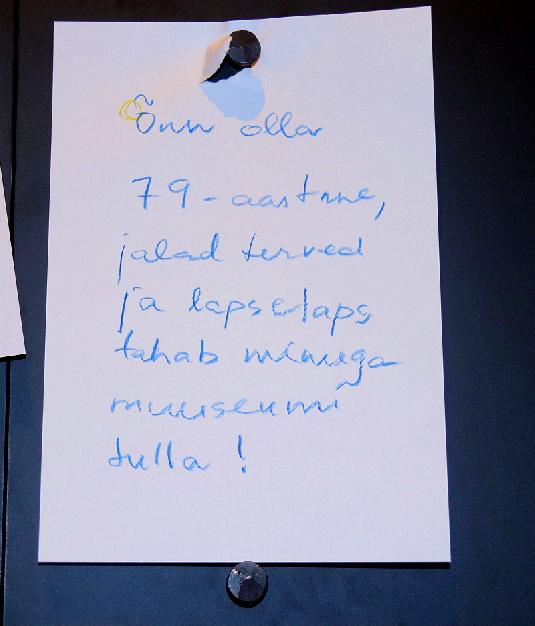 Õnn olla
79-aastane,
jalad terved
ja lapselaps
tahab minuga
muuseumi
tulla!